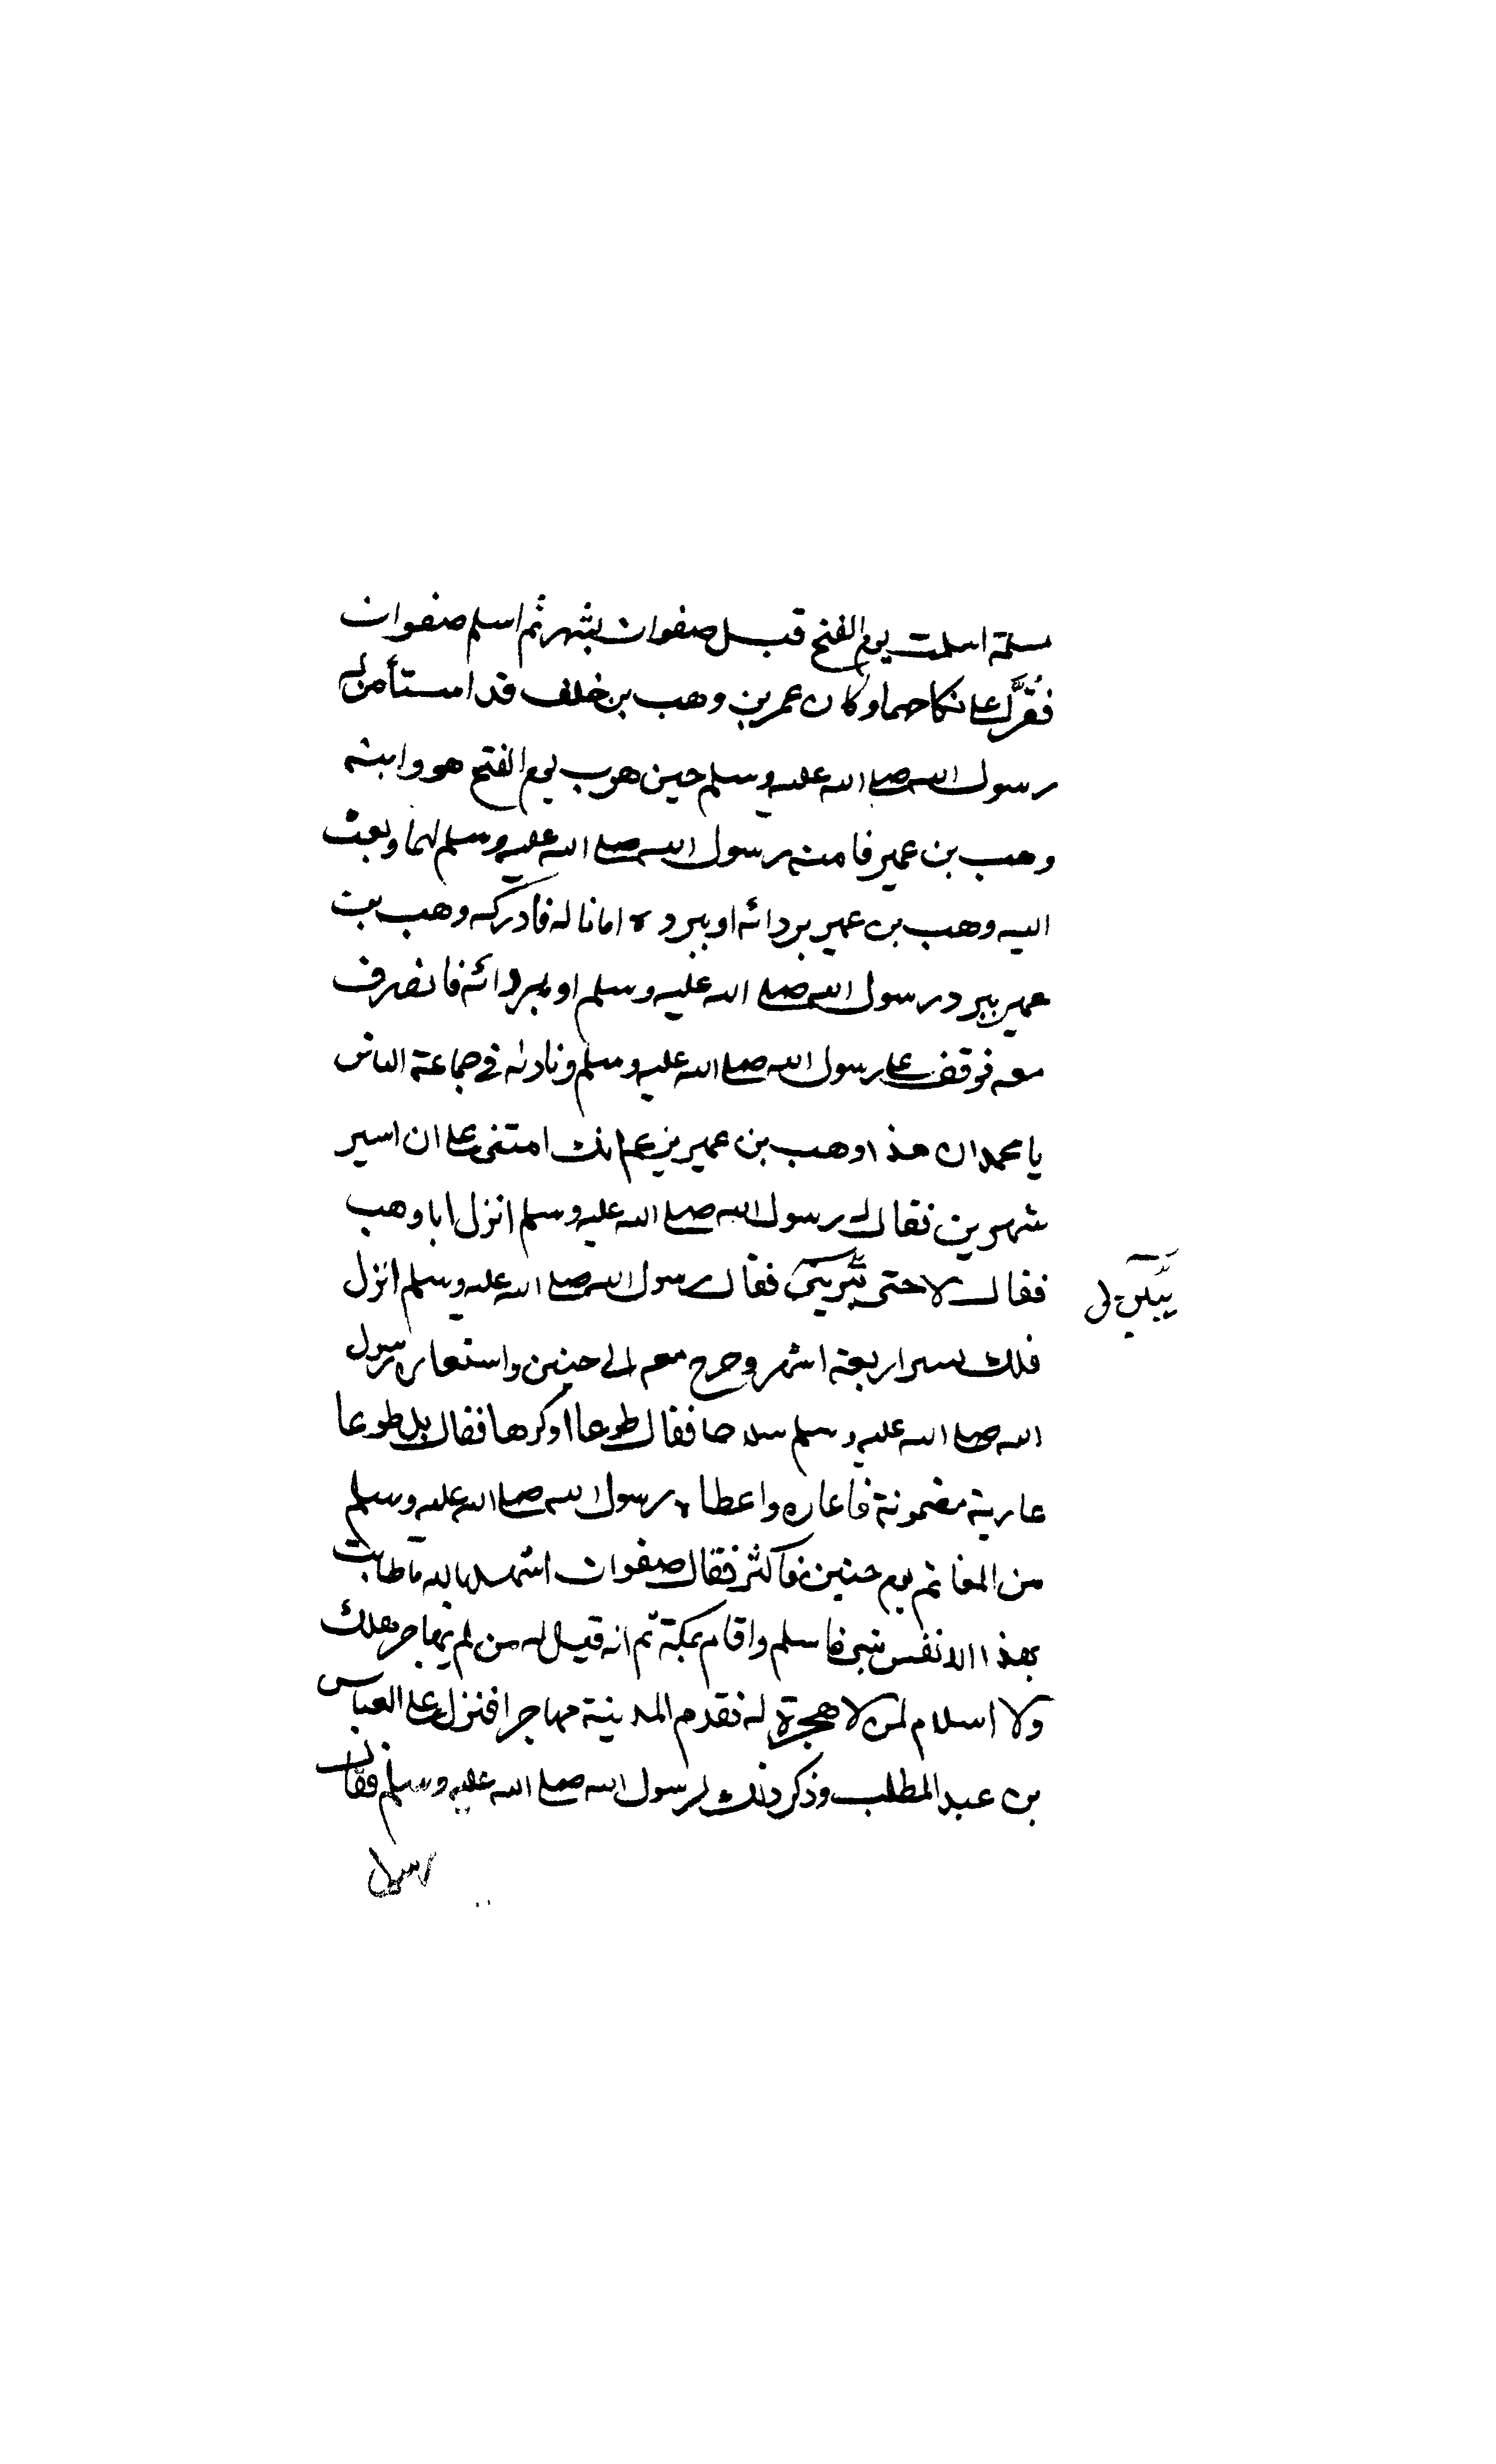 مسلمة اسلمت يوم الفتح قبل صفوان بشهر ثم اسلم صفوان
فقرا على نكاحهما وكان عمير بن وهب بن خلف قد استأمن له
رسول الله صلى الله عليه وسلم حين هرب يوم الفتح هو وابنه
وهب بن عمير فامنه رسول الله صلى الله عليه وسلم لهما وبعث
اليه وهب بن عمير بردائه او ببرده امانا له فادركه وهب بن
عمير ببرد رسول الله صلى الله عليه وسلم او بردائه فانصرف
معه فوقف على رسول الله صلى الله عليه وسلم وناداه في جماعة الناس
يا محمد ان هذا وهب بن عمير يزعم انك امنتنى على ان اسير
شهرين فقال له رسول الله صلى الله عليه وسلم انزل ابا وهب
فقال لا حتى فقال رسول الله صلى الله عليه وسلم انزل
يتبين لى
فلك سير اربعة اشهر وخرج معه الى حنين واستعاره رسول
الله صلى الله عليه وسلم سلاحا فقال طوعا او كرها فقال بل طوعا
عارية مضمونة فاعاره واعطاه رسول الله صلى الله عليه وسلم
من المغانم يوم حنين فاكثر فقال صفوان اشهد بالله ما طابت
بهذا الا نفس نبى فاسلم واقام بمكة ثم انه قيل له من لم يهاجر هلك
ولا اسلام لمن لا هجرة له فقدم المدينة مهاجرا فنزل على العباس
بن عبد المطلب وذكر ذلك لرسول الله صلى الله عليه وسلم فقال
رسول